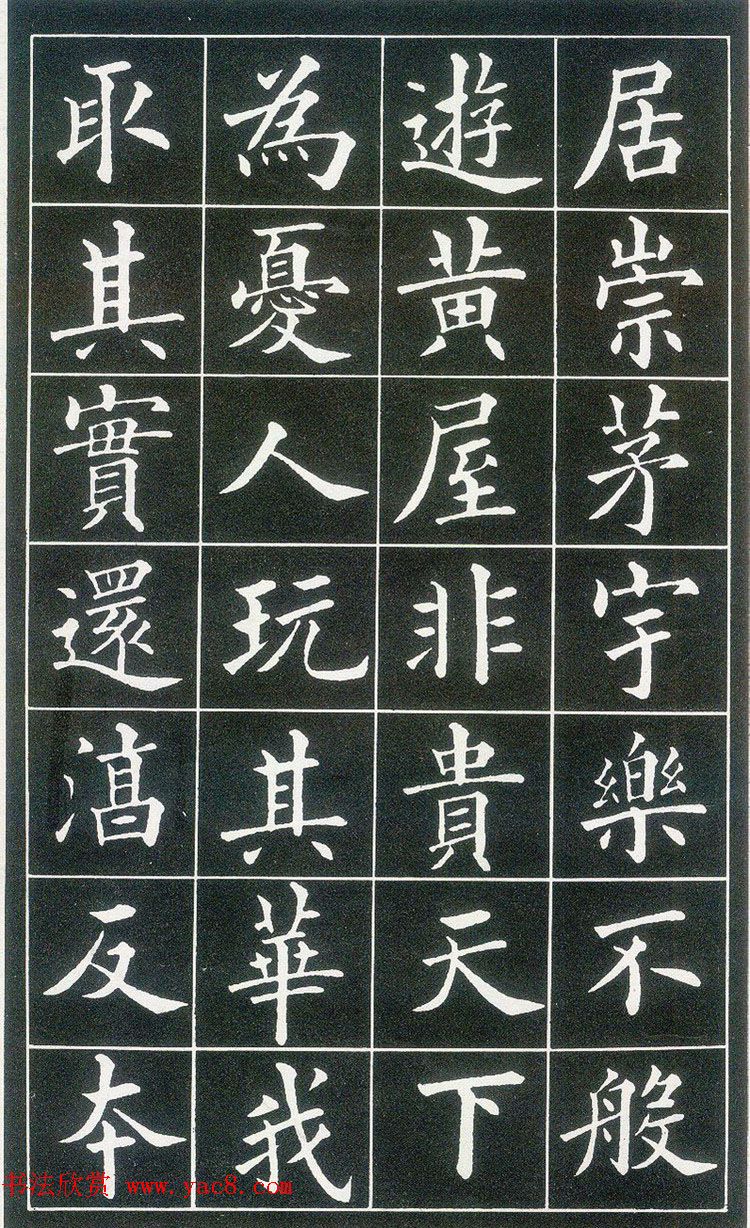 居崇茅宇樂不般
遊黃屋非貴天下
為憂人玩其華我
取其實還淳反本
书法欣赏 www.yac8.com